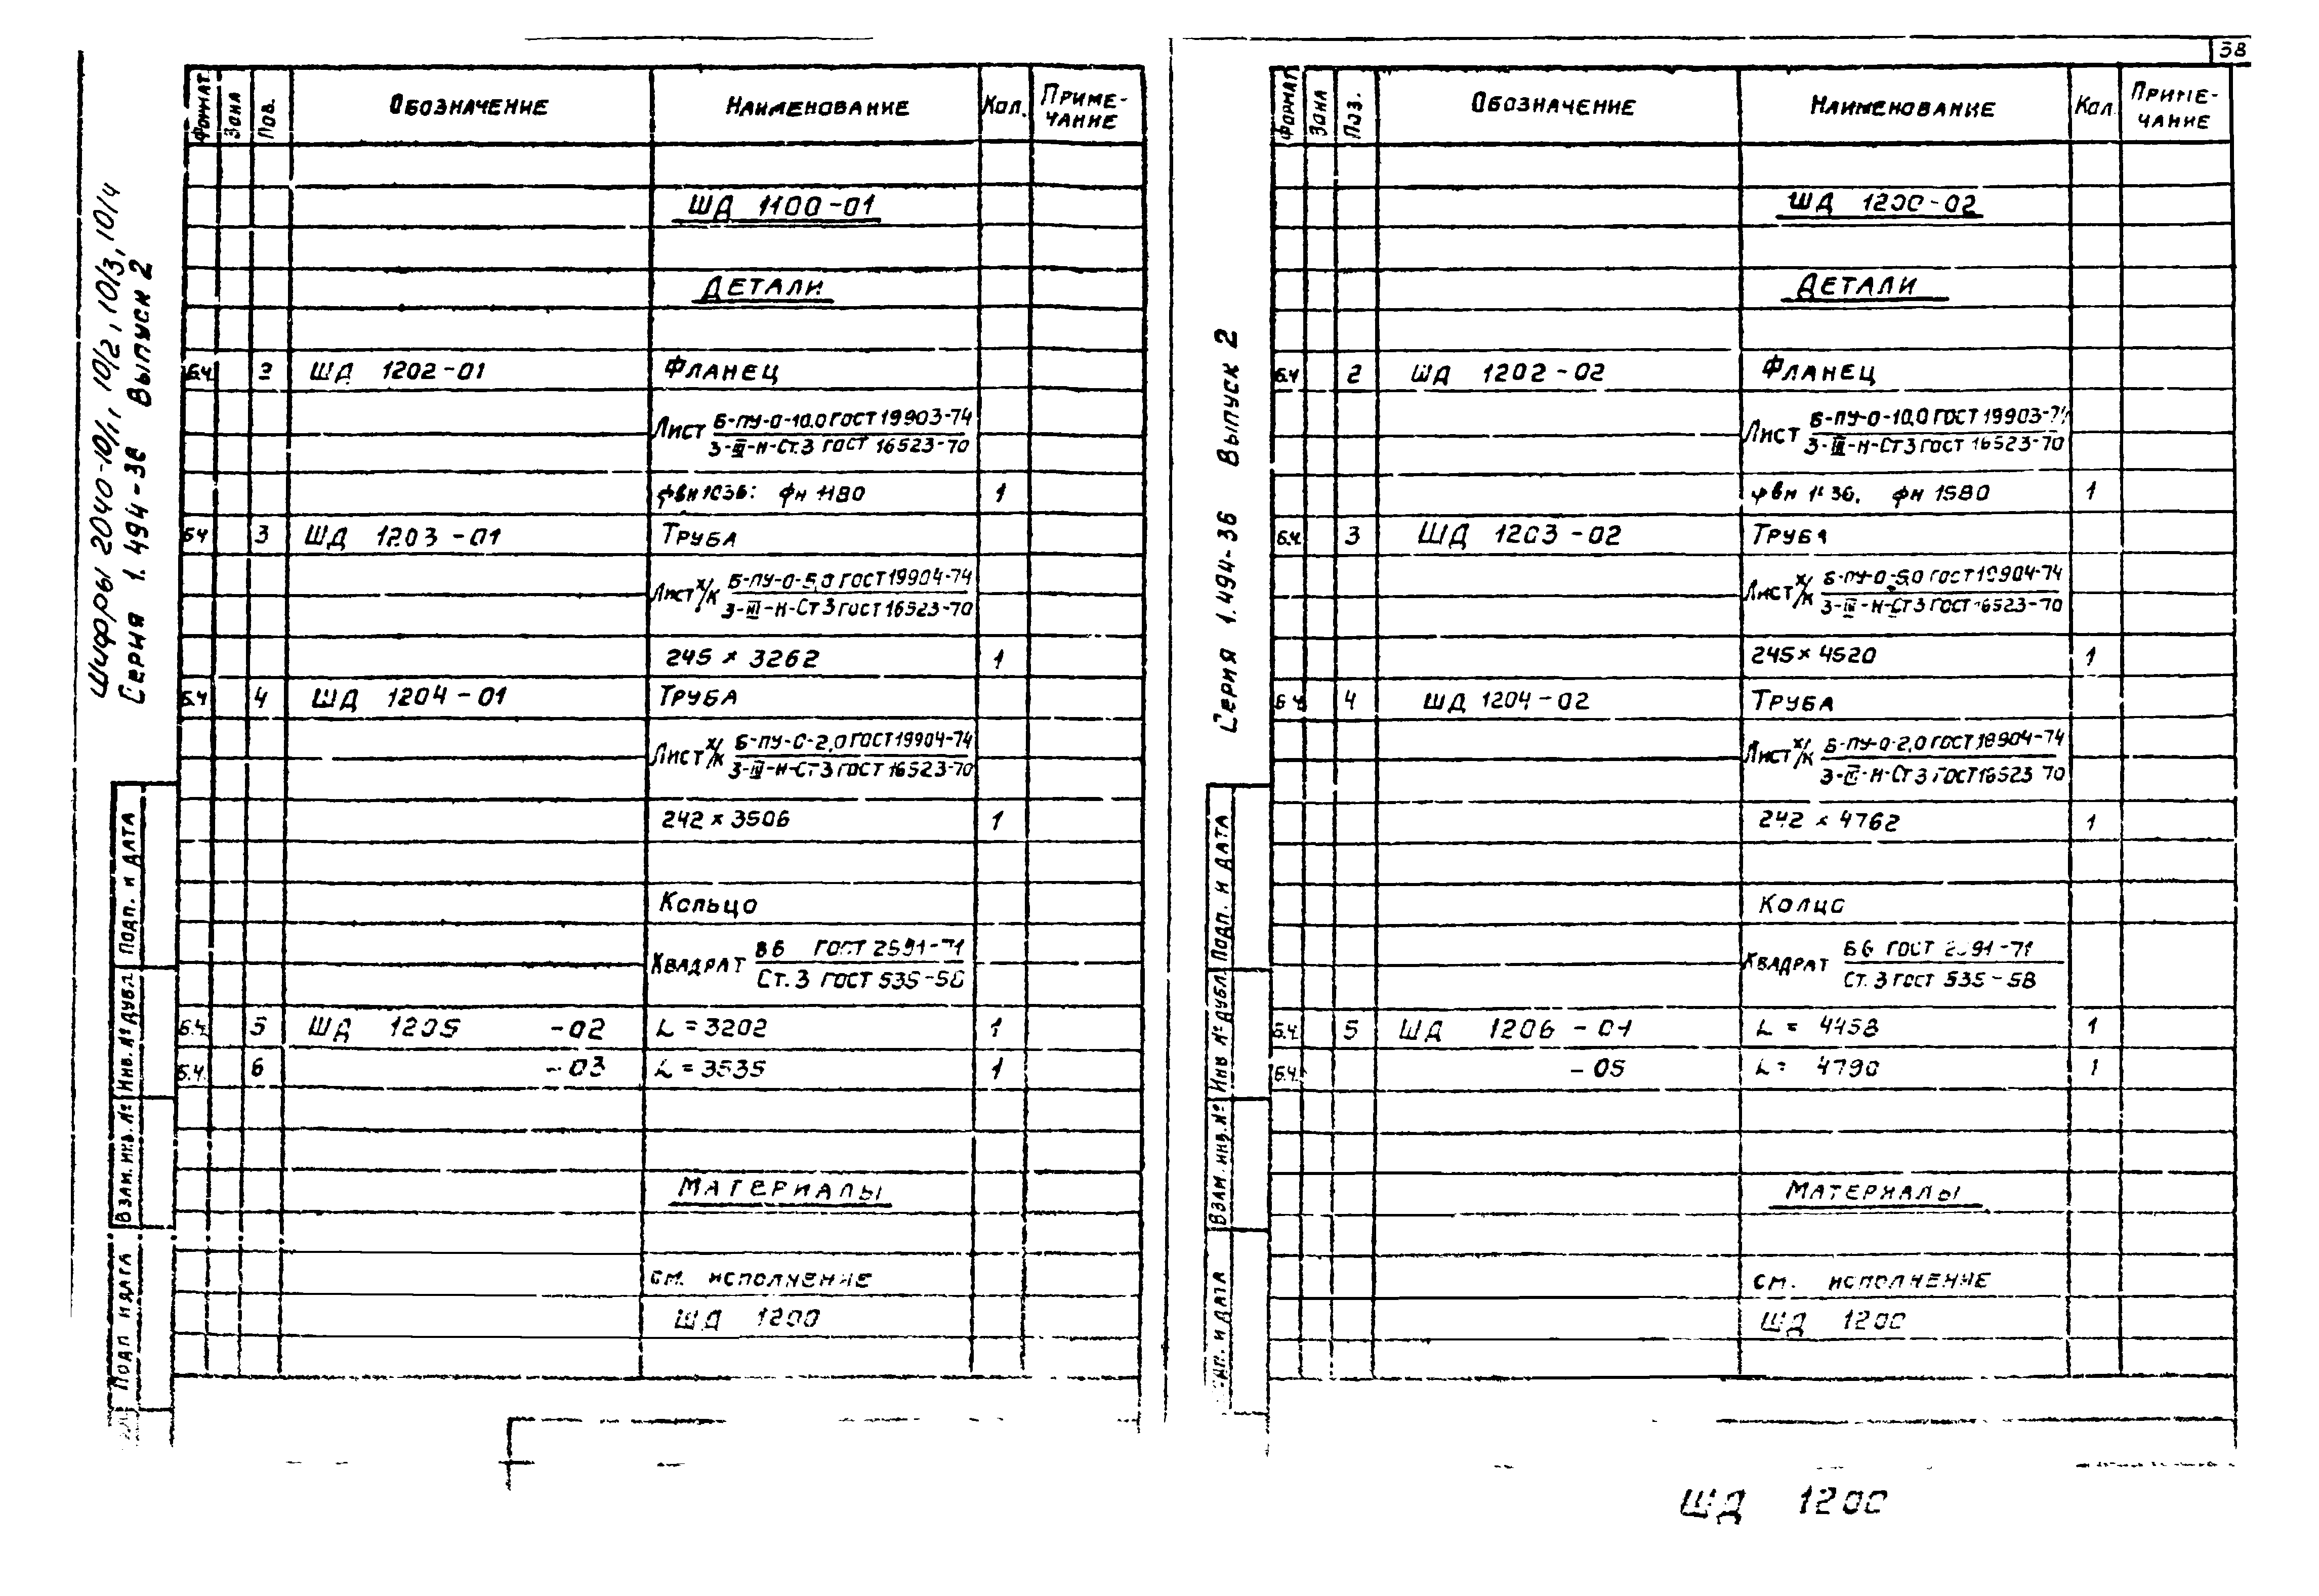 38
Шифры 2040-10/1, 10/2, 10/3, 10/4
Серия 1.494-36 Выпуск 2
Формат Зона Поз. Обозначение Наименование Кол. Приме-
чание
ШД 1100-01
Детали
Б.Ч. 2 ШД 1202-01 Фланец
Лист Б-ПУ-О-10,0 ГОСТ 19903-74
3-III-Н-Ст.3 ГОСТ 16523-70
фвн 1036: фн 1180 1
Б.Ч 3 ШД 1203-01 Труба
Лист х/к Б-ПУ-О-5,0 ГОСТ 19904-74
3-III-Н-Ст 3 ГОСТ 16523-70
245 х 3262 1
Б.Ч 4 ШД 1204-01 Труба
Лист х/к Б-ПУ-О-2,0 ГОСТ 19904-74
3-III-Н-Ст 3 ГОСТ 16523-70
242 х 3506 1
Кольцо
Квадрат ГОСТ 2591-71
Ст. 3 ГОСТ 535-58
Б.Ч. 5 ШД 1205 -02 L = 3202 1
Б.Ч. 6 -03 L = 3535 1
Материалы
см. исполнение
ШД 1200
Подп. и дата
Инв. № дубл.
Взам. инв. №
Подп и дата
Серия 1.494-36 Выпуск 2
Формат Зона Поз. Обозначение Наименование Кол. Приме-
чание
ШД 1200-02
Детали
Б.Ч 2 ШД 1202-02 Фланец
Лист Б-ПУ-О-10,0 ГОСТ 19903-74
3-III-Н-Ст 3 ГОСТ 16523-70
фвн фн 1580 1
Б.Ч. 3 ШД 1203-02 Труба
Лист х/к Б-ПУ-О-5,0 ГОСТ 19904-74
3-III-Н-Ст 3 ГОСТ 16523-70
245 х 4520 1
Б Ч 4 ШД 1204-02 Труба
Лист х/к Б-ПУ-О-2,0 ГОСТ 19904-74
3-III-Н-Ст 3 ГОСТ 16523 70
242 х 4762 1
Колцо
Квадрат ГОСТ 2591-71
Ст. 3 ГОСТ 535-58
Б.Ч. 5 ШД 1206 -01 L = 4458 1
Б.Ч. -05 L = 4790 1
Материалы
см. исполнение
ШД 1200
Подп. и дата
Инв № дубл.
Взам. инв. №
и дата
ШД 1200